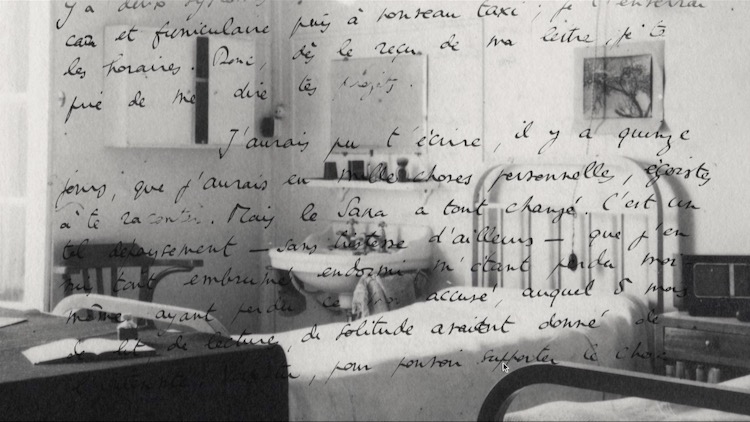 y a deux
car et funiculaire puis à nouveau taxi ; je t'enverrai
les horaires. Donc, dès le reçu de ma lettre, je te
prie de me dire tes projets.
J'aurais pu t'écrire, il y a quinze
jours, que j'aurais eu mille choses personnelles, égoistes
à te raconter. Mais le Sana a tout changé. C'est un
tel dépaysement – sans tristesse d'ailleurs – que j'en
suis tout embrumé endormi m'étant perdu moi
même ayant perdu ce moi accusé, auquel 8 mois
de lit de lecture, de solitude avaient donné de
pour pouvoir supporter le choc